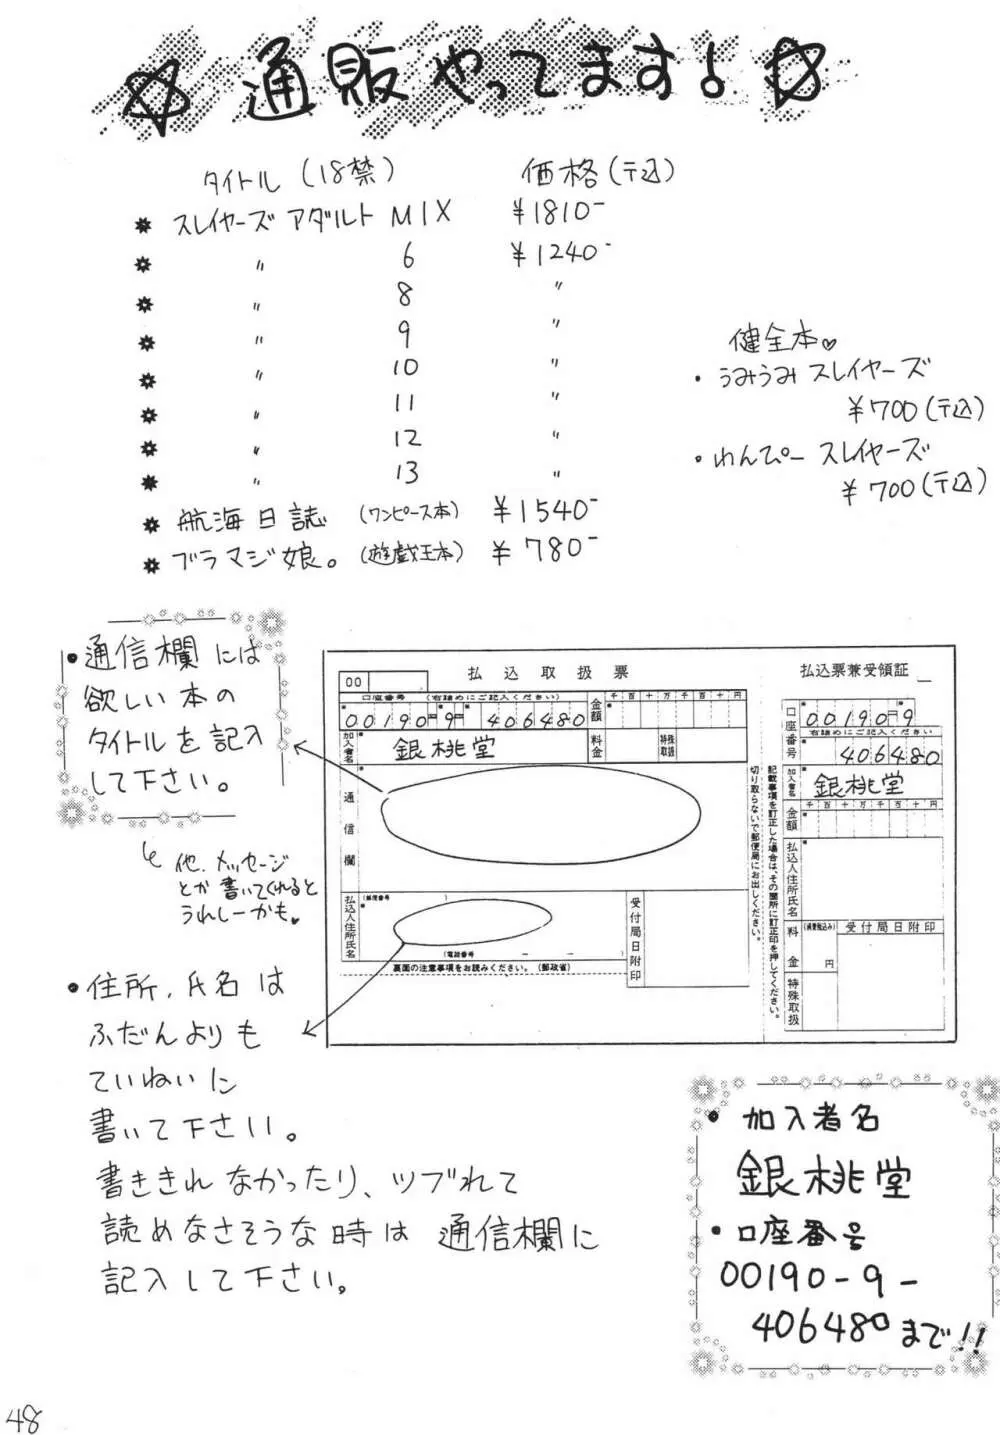 ☆ 通販やってます♪ ☆
タイトル (18禁) 価格(〒込)
スレイヤーズ アダルト MIX ¥1810-
〃 6 ¥1240-
〃 8 〃
〃 9 〃
〃 10 〃
〃 11 〃
〃 12 〃
〃 13 〃
航海日誌 (ワンピース本) ¥1540-
ブラマジ娘。(遊戯王本) ¥780-
健全本♥
・うみうみ スレイヤーズ
¥700(〒込)
・わんぴー スレイヤーズ
¥700(〒込)
・通信欄には
欲しい本の
タイトルを記入
して下さい。
他、メッセージ
とか書いてくれると
うれしーかも♥
・住所、氏名は
ふだんよりも
ていねいに
書いて下さい。
書ききれなかったり、ツブれて
読めなさそうな時は 通信欄に
記入して下さい。
00 払込取扱票
口座番号 (右詰めにご記入ください)
00190-9- 406480
金額 千百十万千百十円
加入者名 銀桃堂
料金 特殊取扱
通信欄
払込人住所氏名
(郵便番号 )
(電話番号 - - )
受付局日附印
裏面の注意事項をお読みください。(郵政省)
切り取らないで郵便局にお出しください。
記載事項を訂正した場合は、その箇所に訂正印を押してください。
払込票兼受領証
口座番号 00190-9
右詰めにご記入ください
406480
加入者名 銀桃堂
金額 千百十万千百十円
払込人住所氏名
料金 (消費税込み) 円
受付局日附印
特殊取扱
・加入者名
銀桃堂
・口座番号
00190-9-
406480まで!!
48